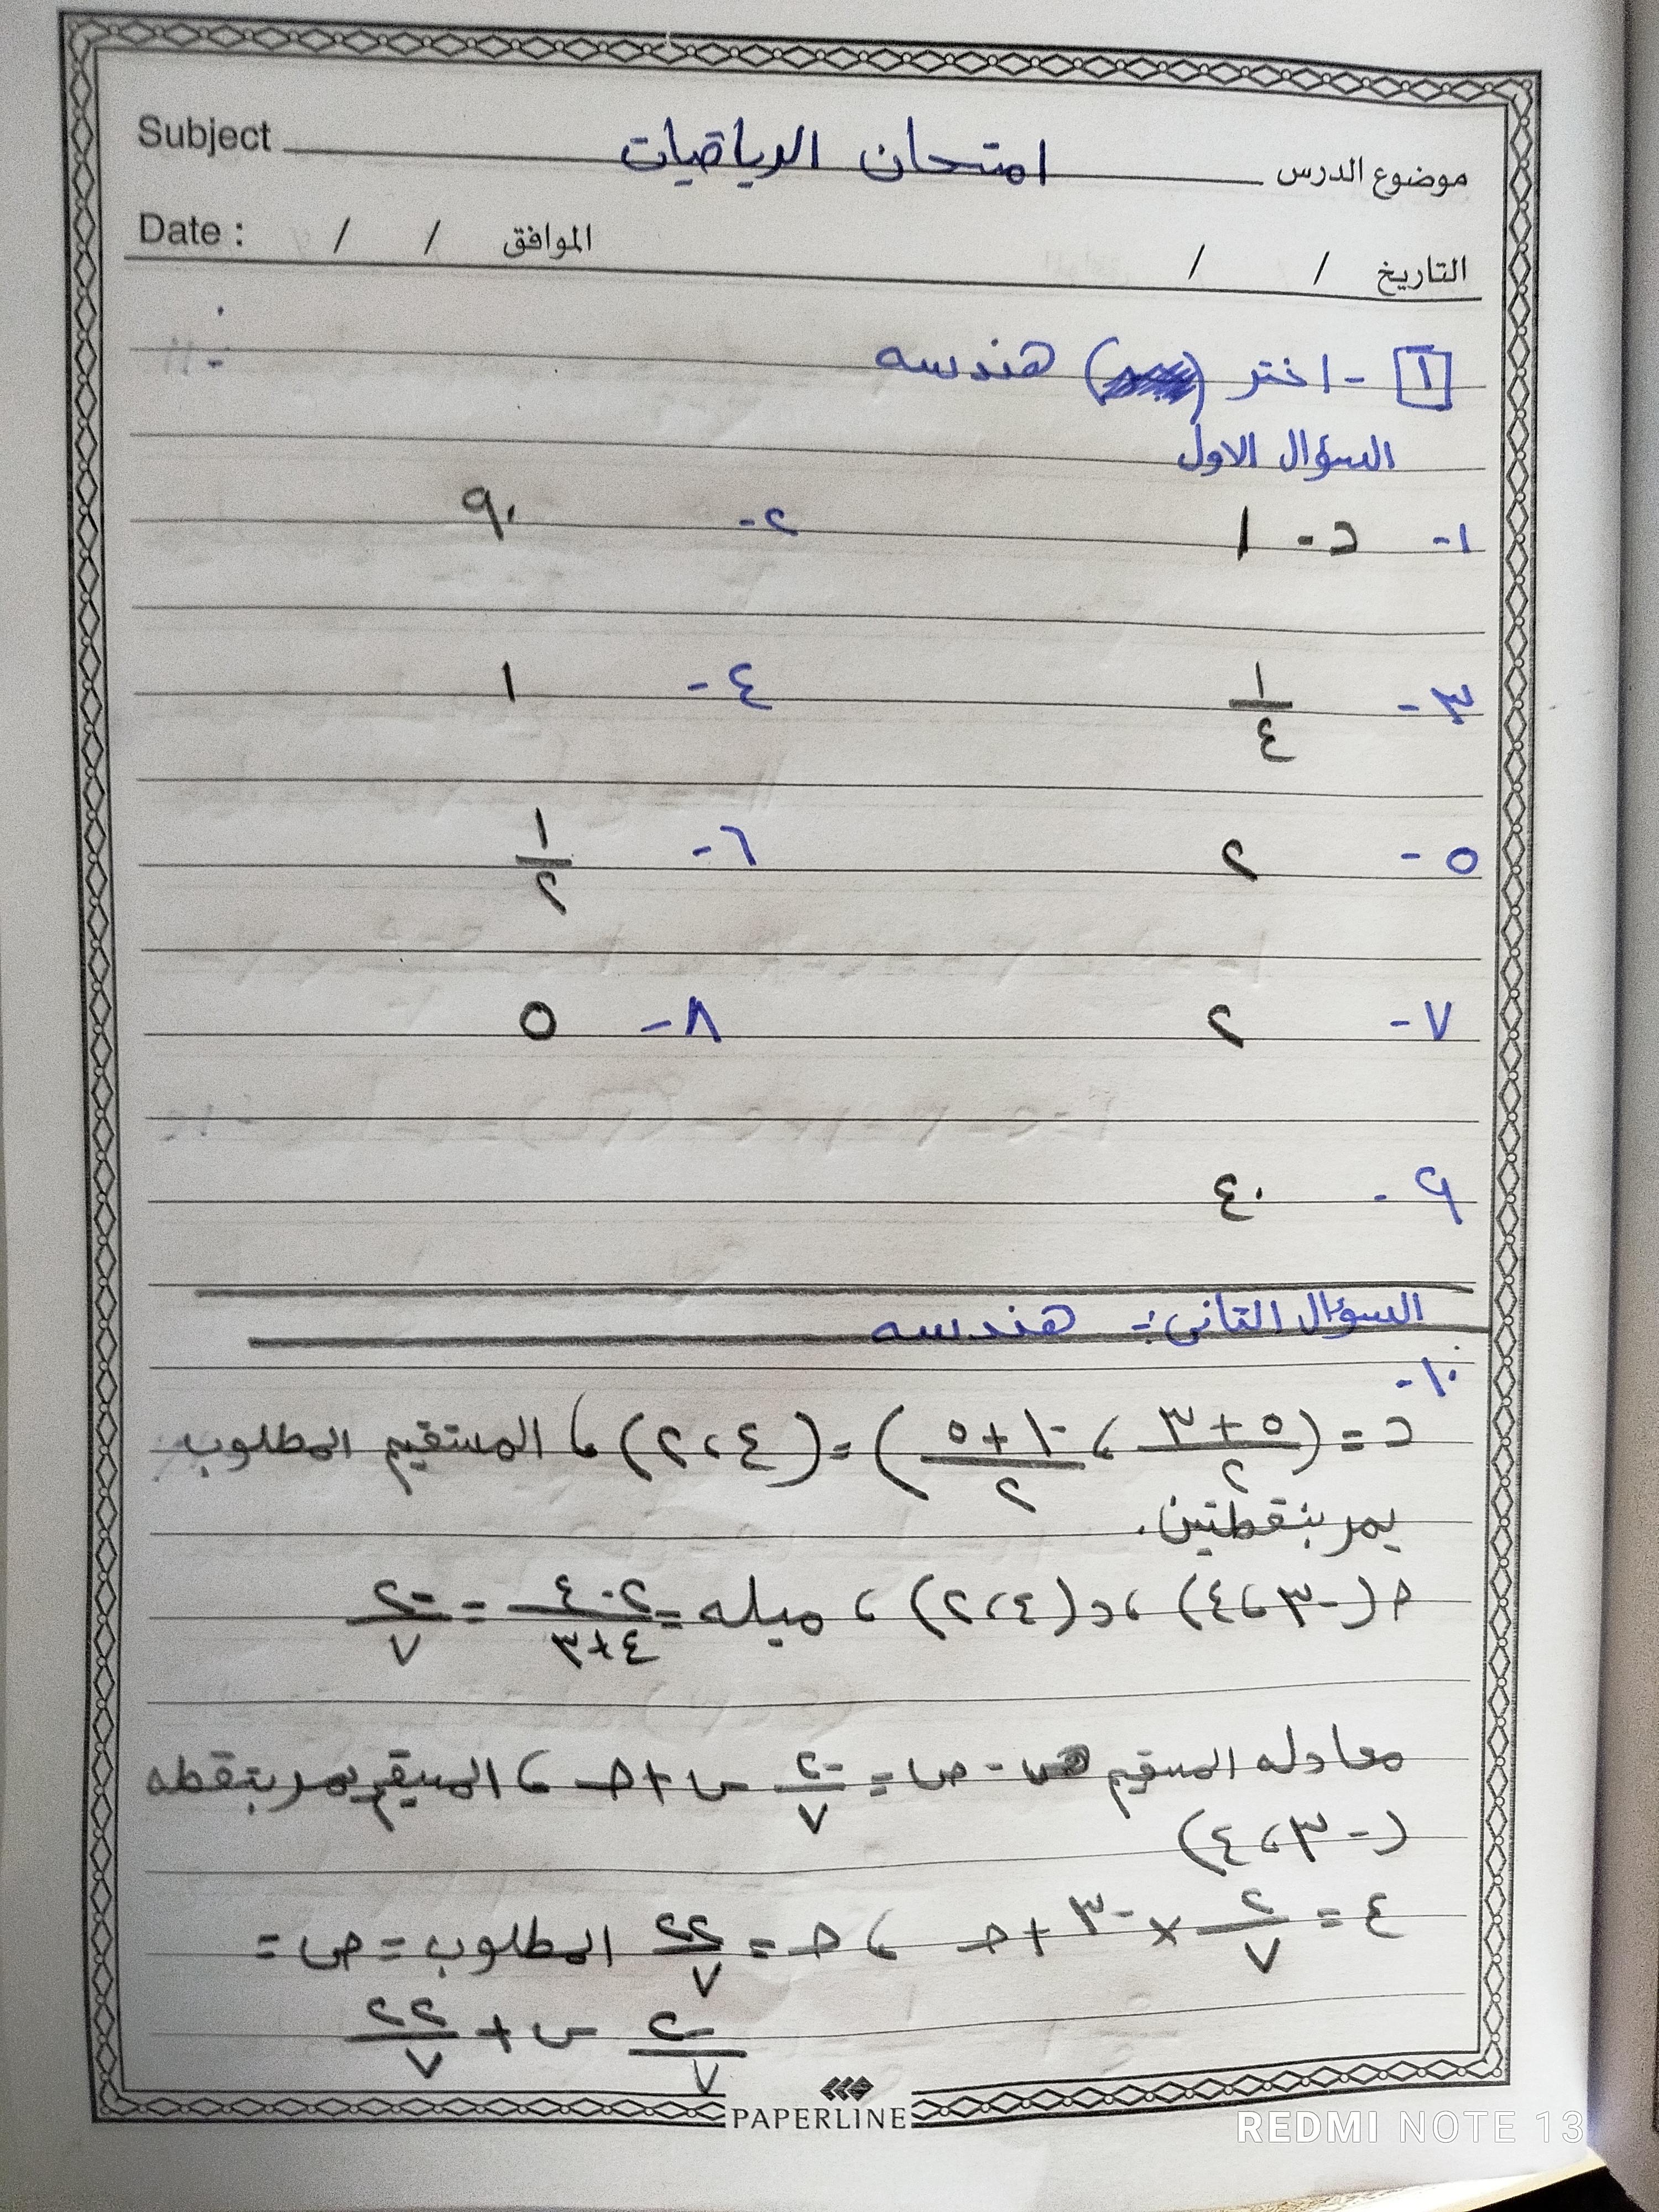 Subject امتحان الرياضيات موضوع الدرس
Date : / / الموافق / / التاريخ
١ - اختر ( ) هندسه
السؤال الاول
١- د - ١ ٢- ٩٠
٣- ١/٤ ٤- ١
٥- ٢ ٦- ١/٢
٧- ٢ ٨- ٥
٩- ٤٠
السؤال الثانى :- هندسه
١٠-
د = (٥+٣/٢ ، -١+٥/٢) = (٤،٢) ، المستقيم المطلوب
يمر بنقطتين.
م(-٣،٤) ، د(٤،٢) ، ميله = ٢-٤/٤+٣ = -٢/٧
معادله المستقيم ص = -٢/٧ س + حـ ، المستقيم يمر بنقطه
(-٣،٤)
٤ = -٢/٧ × -٣ + حـ ، حـ = ٢٢/٧ المطلوب = ص =
-٢/٧ س + ٢٢/٧
PAPERLINE
REDMI NOTE 13